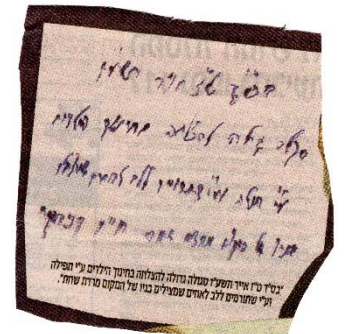 בס"ד ט"ז אייר תשע"ז
סגולה גדולה להצלחה בחינוך הילדים
ע"י תפלה וע"י שתורמים ללב לאחים שמצילים
בניו של המקום מרדת שחת
"בס"ד ט"ז אייר תשע"ז סגולה גדולה להצלחה בחינוך הילדים ע"י תפילה
וע"י שתורמים ללב לאחים שמצילים בניו של המקום מרדת שחת".